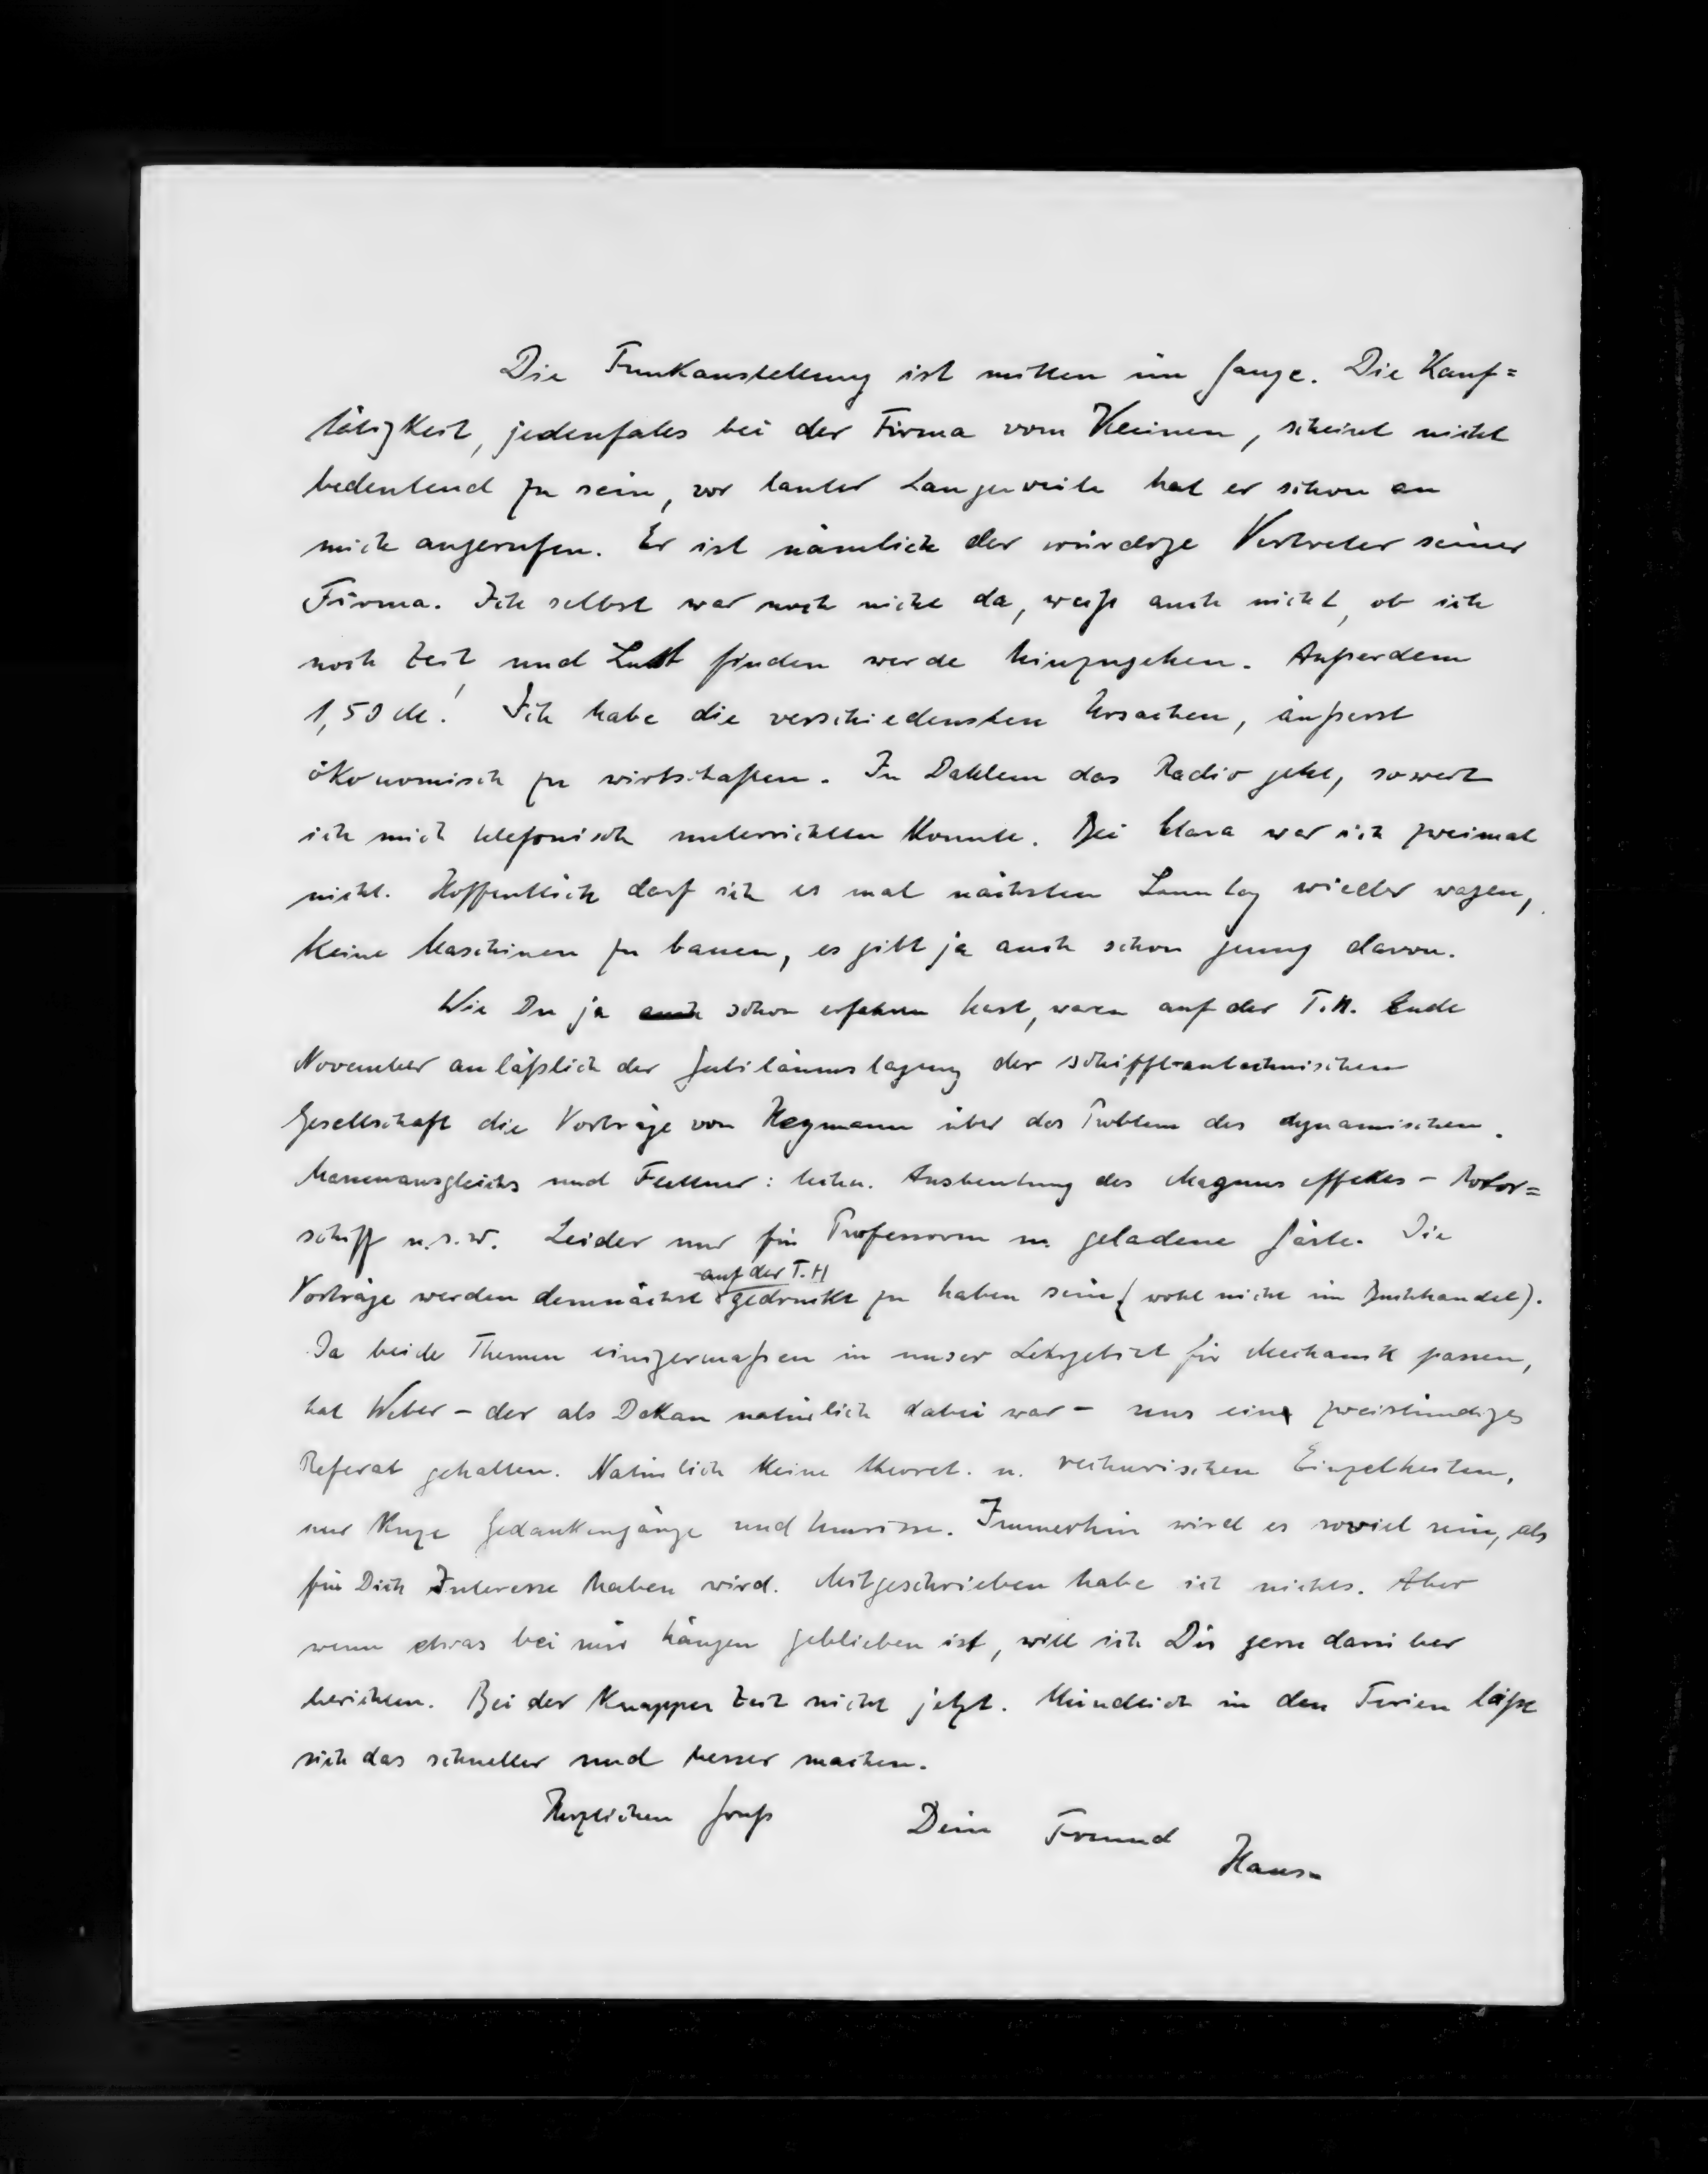 Die Funkausstellung ist mitten im Gange. Die Kauf=
tätigkeit, jedenfalls bei der Firma vom Kleinen, scheint nicht
bedeutend zu sein, vor lauter Langerweile hat er schon an
mich angerufen. Er ist nämlich der würdige Vertreter seiner
Firma. Ich selbst war noch nicht da, weiß auch nicht, ob ich
noch Zeit und Lust finden werde hinzugehen. Außerdem
1,50 M! Ich habe die verschiedensten Ursachen, äußerst
ökonomisch zu wirtschaften. In Dahlem das Radio geht, soweit
ich mich telefonisch unterrichten konnte. Bei Clara war ich zweimal
nicht. Hoffentlich darf ich es mal nächsten Sonntag wieder wagen,
keine Maschinen zu bauen, es gibt ja auch schon genug davon.
Wie Du ja auch schon erfahren hast, waren auf der T.H. Ende
November anläßlich der Jubiläumstagung der schiffbautechnischen
Gesellschaft die Vorträge von Heymann über das Problem des dynamischen
Massenausgleichs und Föttner: techn. Ausbeutung des Magnuseffektes - Rotor=
schiff u.s.w. Leider nur für Professoren u. geladene Gäste. Die
Vorträge werden demnächst auf der T.H gedruckt zu haben sein (wohl nicht im Buchhandel).
Da beide Themen einigermaßen in unser Lehrgebiet für Mechanik passen,
hat Weber - der als Dekan natürlich dabei war - uns ein zweistündiges
Referat gehalten. Natürlich keine theoret. u. rechnerischen Einzelheiten,
nur kurze Gedankengänge und Umrisse. Immerhin wird es soviel sein, als
für Dich Interesse haben wird. Mitgeschrieben habe ich nichts. Aber
wenn etwas bei mir hängen geblieben ist, will ich Dir gern darüber
berichten. Bei der knappen Zeit nicht jetzt. Mündlich in den Ferien läßt
sich das schneller und besser machen.
Herzlichen Gruß Dein Freund
Hans.